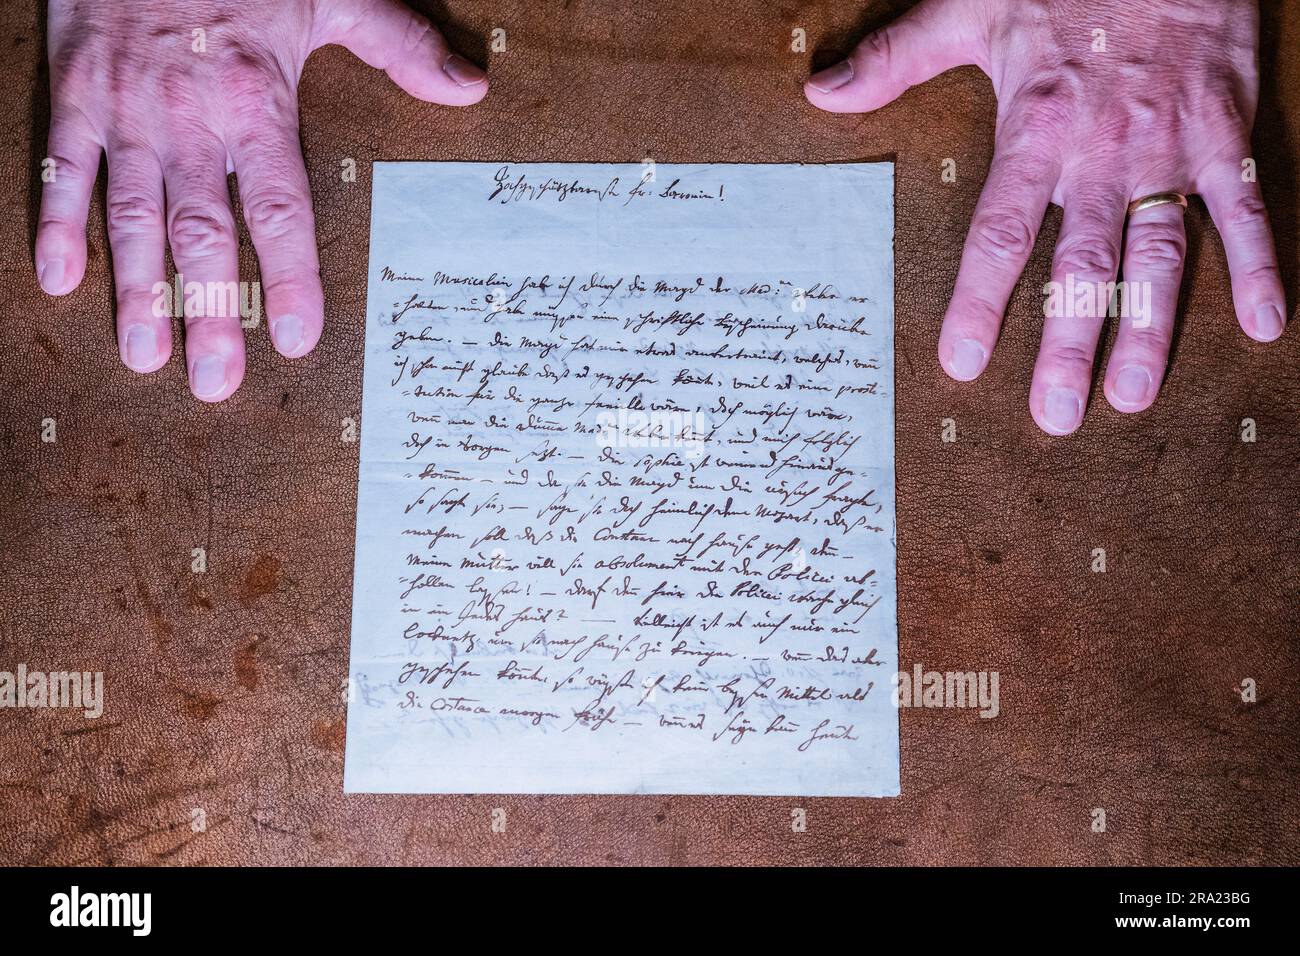 Hochschätzbarste fr: Baronin!
Meine Musicalien hab ich durch die Magd der Mad:me Weber er
=halten, und hab müssen eine schriftliche bescheinung darüber
geben. — die Magd hat mir etwas anvertrauet, welches, wenn
ich schon nicht glaube daß es geschehen könnte, weil es eine prosti-
=tution für die ganze familie wäre, doch möglich wäre,
wenn man die dumme Mad:me Weber kennt, und mich folglich
doch in Sorgen setzt. — die Sophie ist weinend hinausge-
=kommen — und da sie die Magd um die ursach fragte,
so sagte sie, — sage sie doch heimlich dem Mozart, daß er
machen soll daß die Constanz nach hause geht, denn —
Meine Mutter will sie absolument mit der Policei ab=
=hollen lassen! — darf denn hier die Policei wache gleich
in ein Jedes haus? — Vielleicht ist es auch nur ein
locknetz um sie nach hause zu kriegen. — wenn das aber
geschehen könnte, so wüsste ich kein besser Mittel als
die Costance morgen frühe — wenn es seyn kann heute
alamy
alamy
alamy
alamy
Image ID: 2RA23BG
www.alamy.com